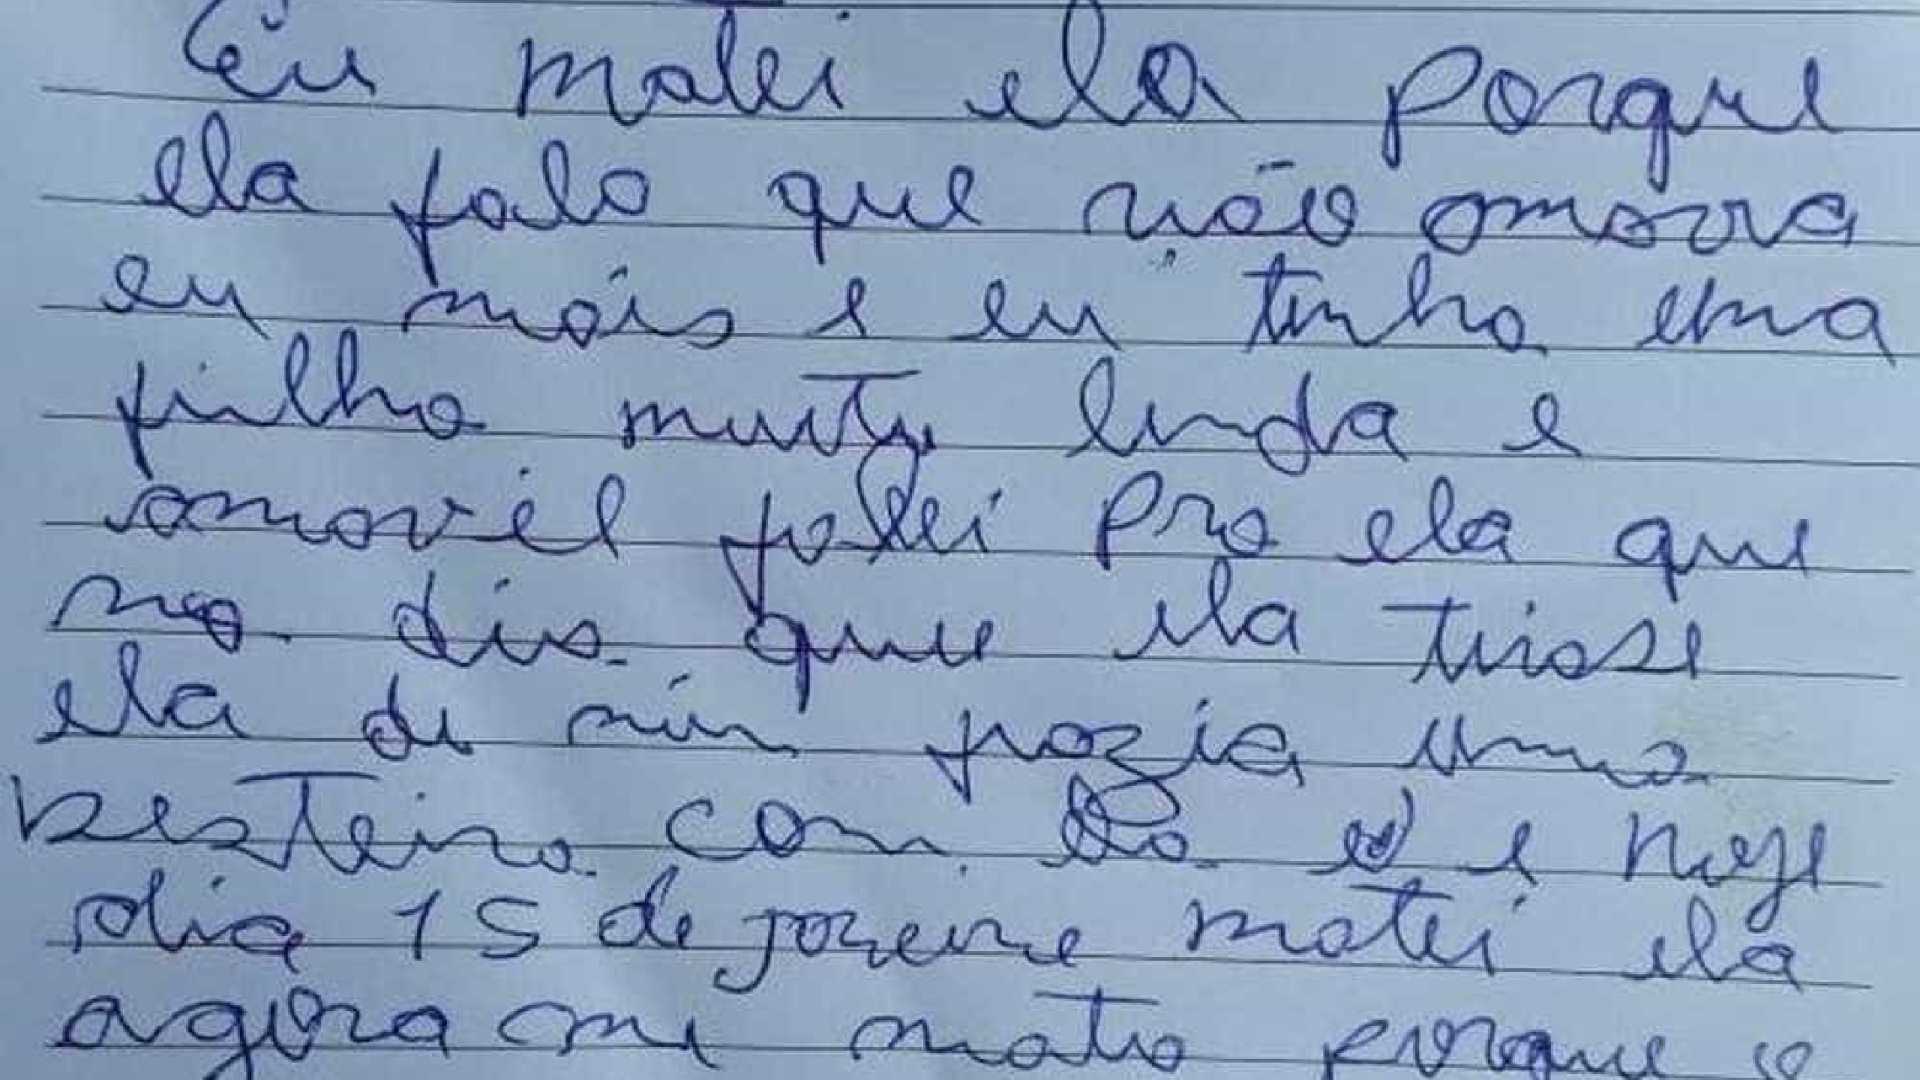 Eu matei ela porque
ela falo que não amava
eu mais e eu tinha uma
filha muito linda e
amavel falei pra ela que
no dia que ela tirase
ela de min fazia uma
besteira com ela e hoje
dia 15 de janeiro matei ela
agora me mato porque